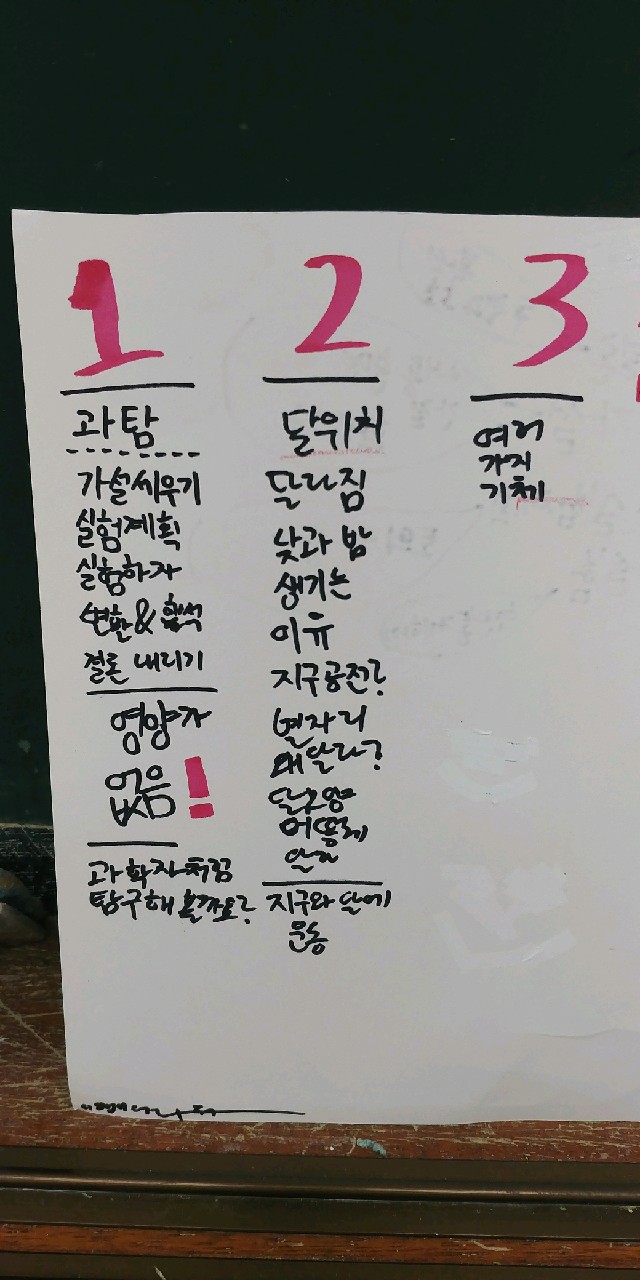 1
과탐
가설세우기
실험계획
실험하자
변환 & 해석
결론 내리기
영양가
없은
빵!
과학자처럼
탐구해 볼까요?
2
달위치
달라짐
낮과 밤
생기는
이유
지구공전?
별자리
왜 달라?
달모양
어떻게
달라
지구와 달에
운동
3
여러
가지
기체